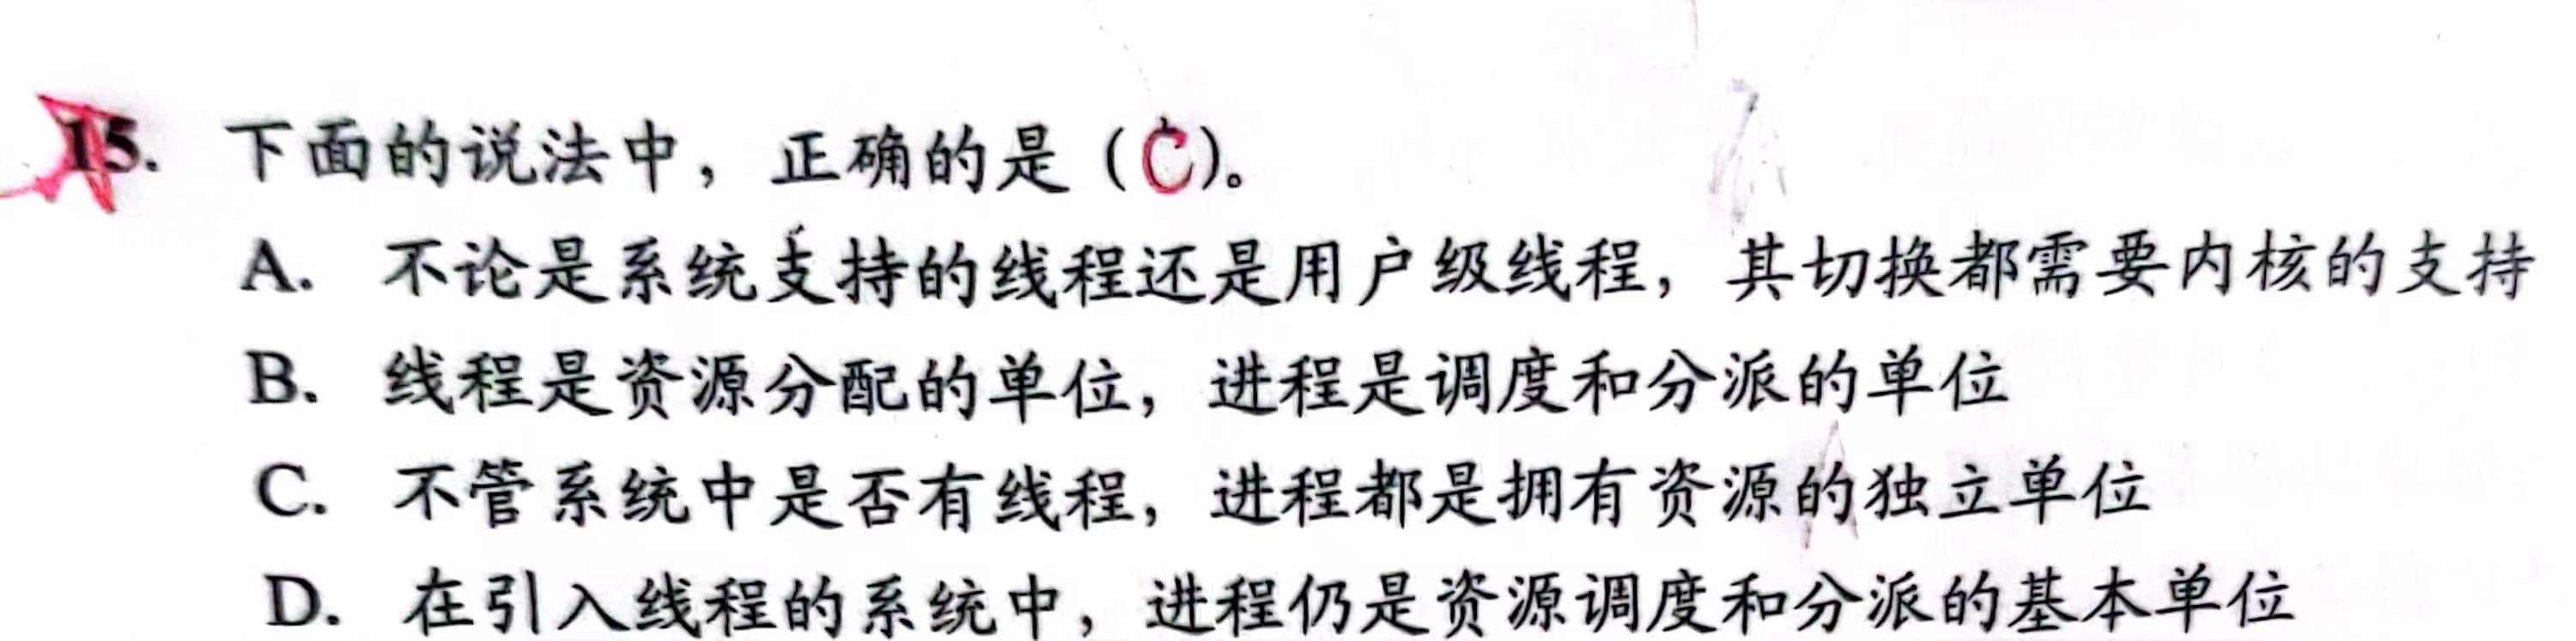 15. 下面的说法中，正确的是（C）。
A. 不论是系统支持的线程还是用户级线程，其切换都需要内核的支持
B. 线程是资源分配的单位，进程是调度和分派的单位
C. 不管系统中是否有线程，进程都是拥有资源的独立单位
D. 在引入线程的系统中，进程仍是资源调度和分派的基本单位